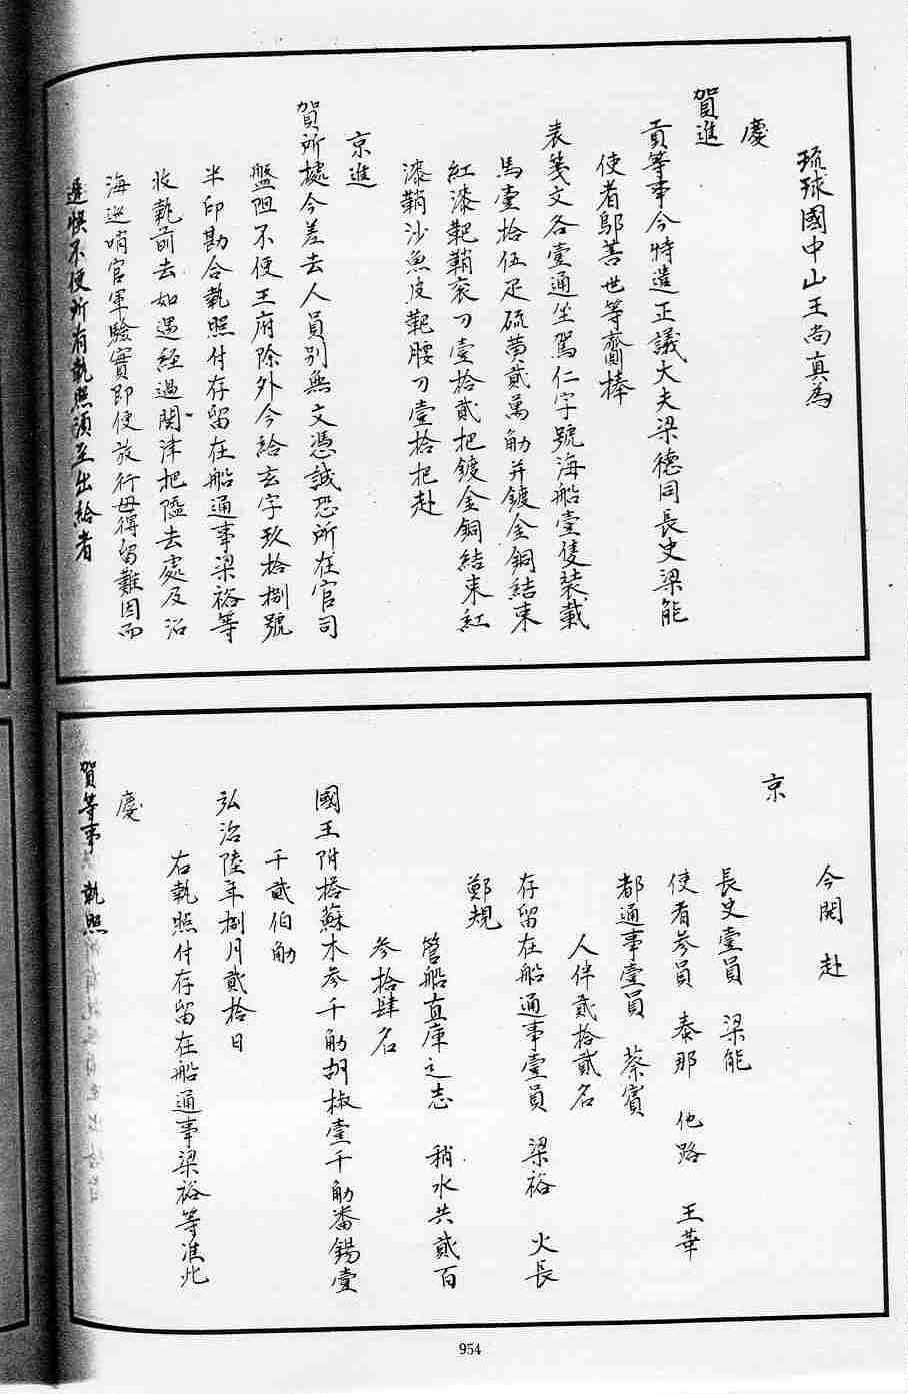 琉球國中山王尚真為
慶
賀進
貢等事今特遣正議大夫梁德同長史梁能
使者鄔菩世等齎捧
表箋文各壹通坐駕仁字號海船壹隻裝載
馬壹拾伍疋硫黄貳萬觔并鍍金銅結束
紅漆靶鞘衮刀壹拾貳把鍍金銅結束紅
漆鞘沙魚皮靶腰刀壹拾把赴
京進
賀所據今差去人員別無文憑誠恐所在官司
盤阻不便王府除外今給玄字玖拾捌號
半印勘合執照付存留在船通事梁裕等
收執前去如遇經過関津把隘去處及沿
海巡哨官軍驗實即便放行毋得留難因而
遲悞不便所有執照須至出給者
今開赴
京
長史壹員 梁能
使者参員 泰那 他路 王華
都通事壹員 蔡賓
人伴貳拾貳名
存留在船通事壹員 梁裕 火長
鄭規
管船直庫之志 稍水共貳百
参拾肆名
國王附搭蘇木参千觔胡椒壹千觔番錫壹
千貳伯觔
弘治陸年捌月貳拾日
右執照付存留在船通事梁裕等准此
慶
賀等事 執照
954